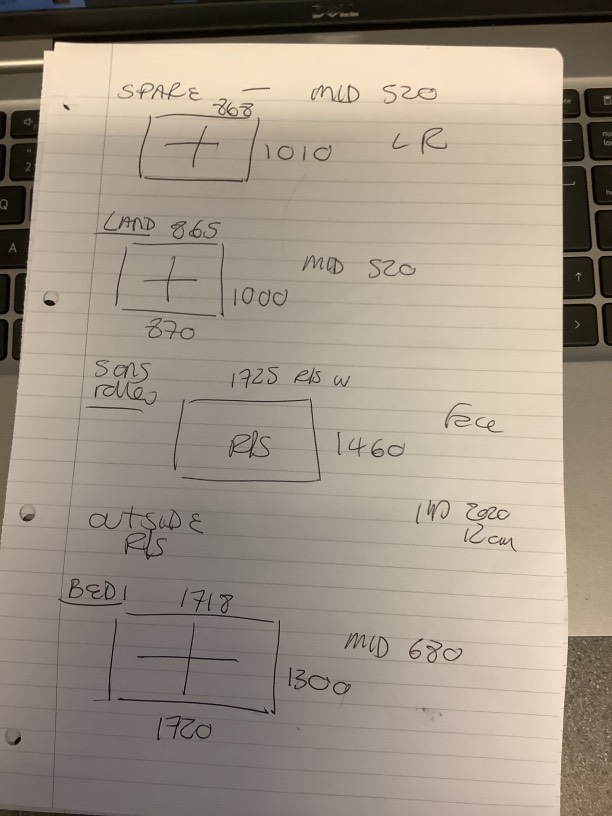 DELL
SPARE - MID 520
868
1010 LR
LAND 865
MID 520
1000
870
sons
roller 1725 R/S W
Face
R/S 1460
OUTSIDE
R/S
2020
12cm
BED 1 1718
MID 680
1300
1720